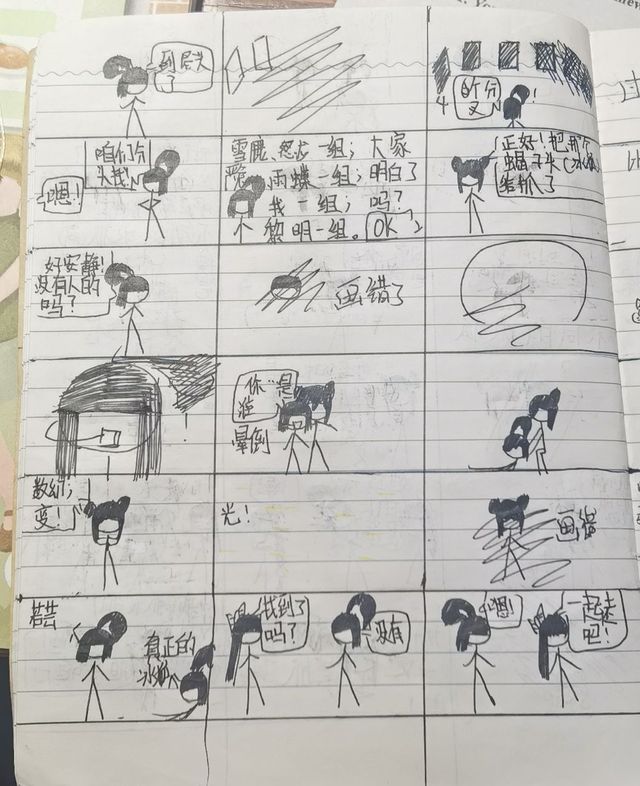 到后头
了
4
的分
叉
!
咱们分
头找!
嗯!
雪鹿、怒龙一组;大家
雨蝶一组;明白了
我一组;吗?
黎明一组。OK
正好!把那个
蝎子头(水
给抓了
好安静!
没有人的
吗?
画错了
你…是
谁
晕倒
数幻;
变!
光!
画错
真正的
找到了
吗?
没有
嗯!
一起走
吧!